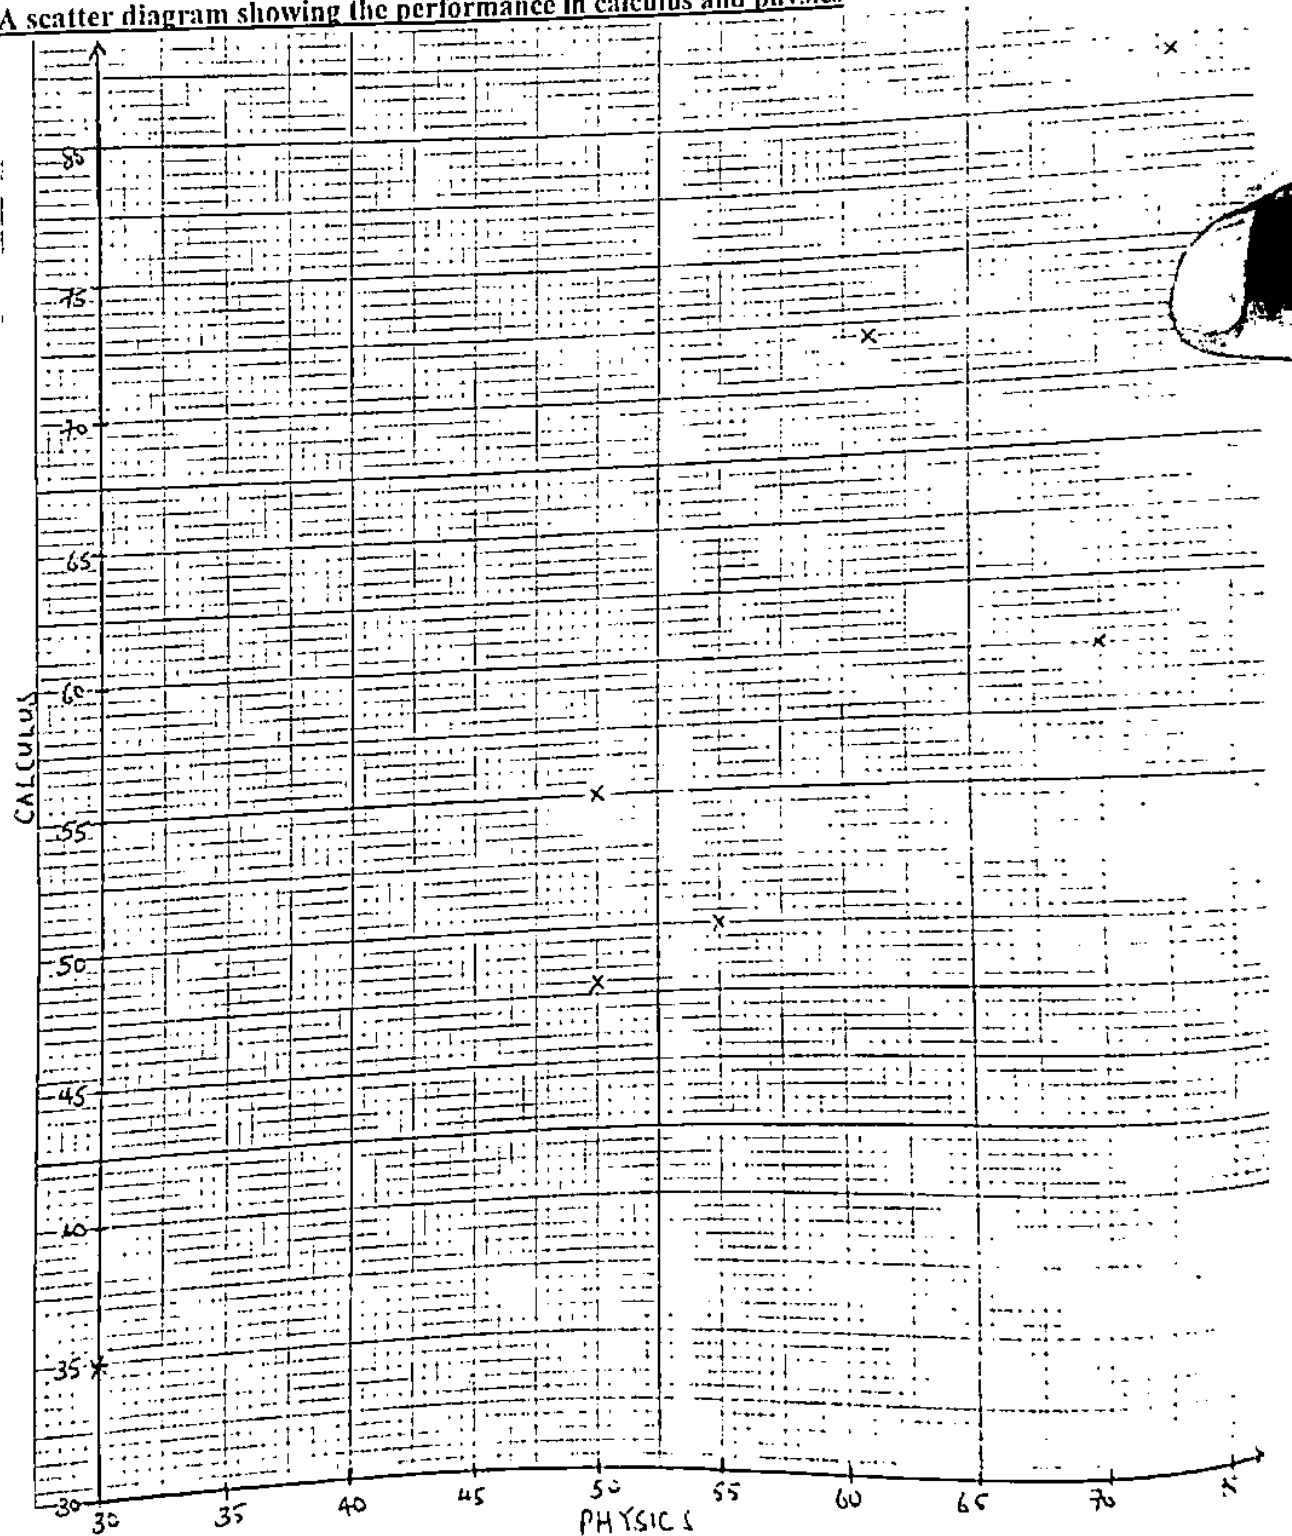 A scatter diagram showing the performance in calculus and physics
80
75
70
65
60
CALCULUS
55
50
45
40
35
30
30 35 40 45 50 55 60 65 70
PHYSICS